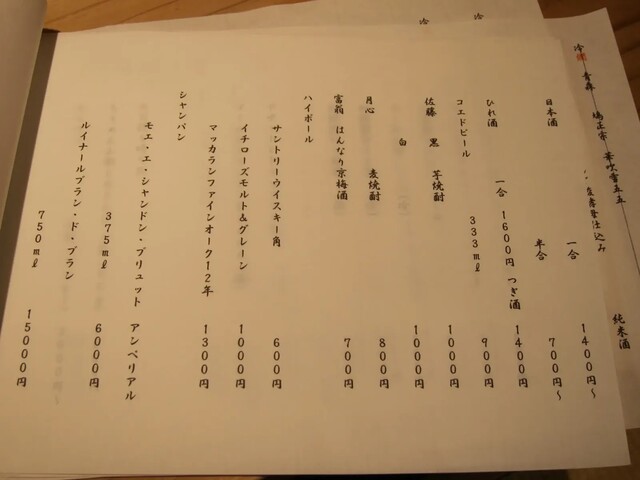 日本酒 一合 1400円〜
半合 700円〜
ひれ酒 一合 1600円 つぎ酒 1400円
コエドビール 333ml 900円
佐藤 黒 芋焼酎 1000円
白 1000円
月心 麦焼酎 800円
富翁 はんなり京梅酒 700円
ハイボール
サントリーウイスキー角 600円
イチローズモルト&グレーン 1000円
マッカランファインオーク12年 1300円
シャンパン
モエ・エ・シャンドン・ブリュット アンペリアル
375ml 6000円
ルイナールブラン・ド・ブラン
750ml 15000円
冷 青森 鳩正宗 華吹雪五五 純米酒
仕込み
冷
冷